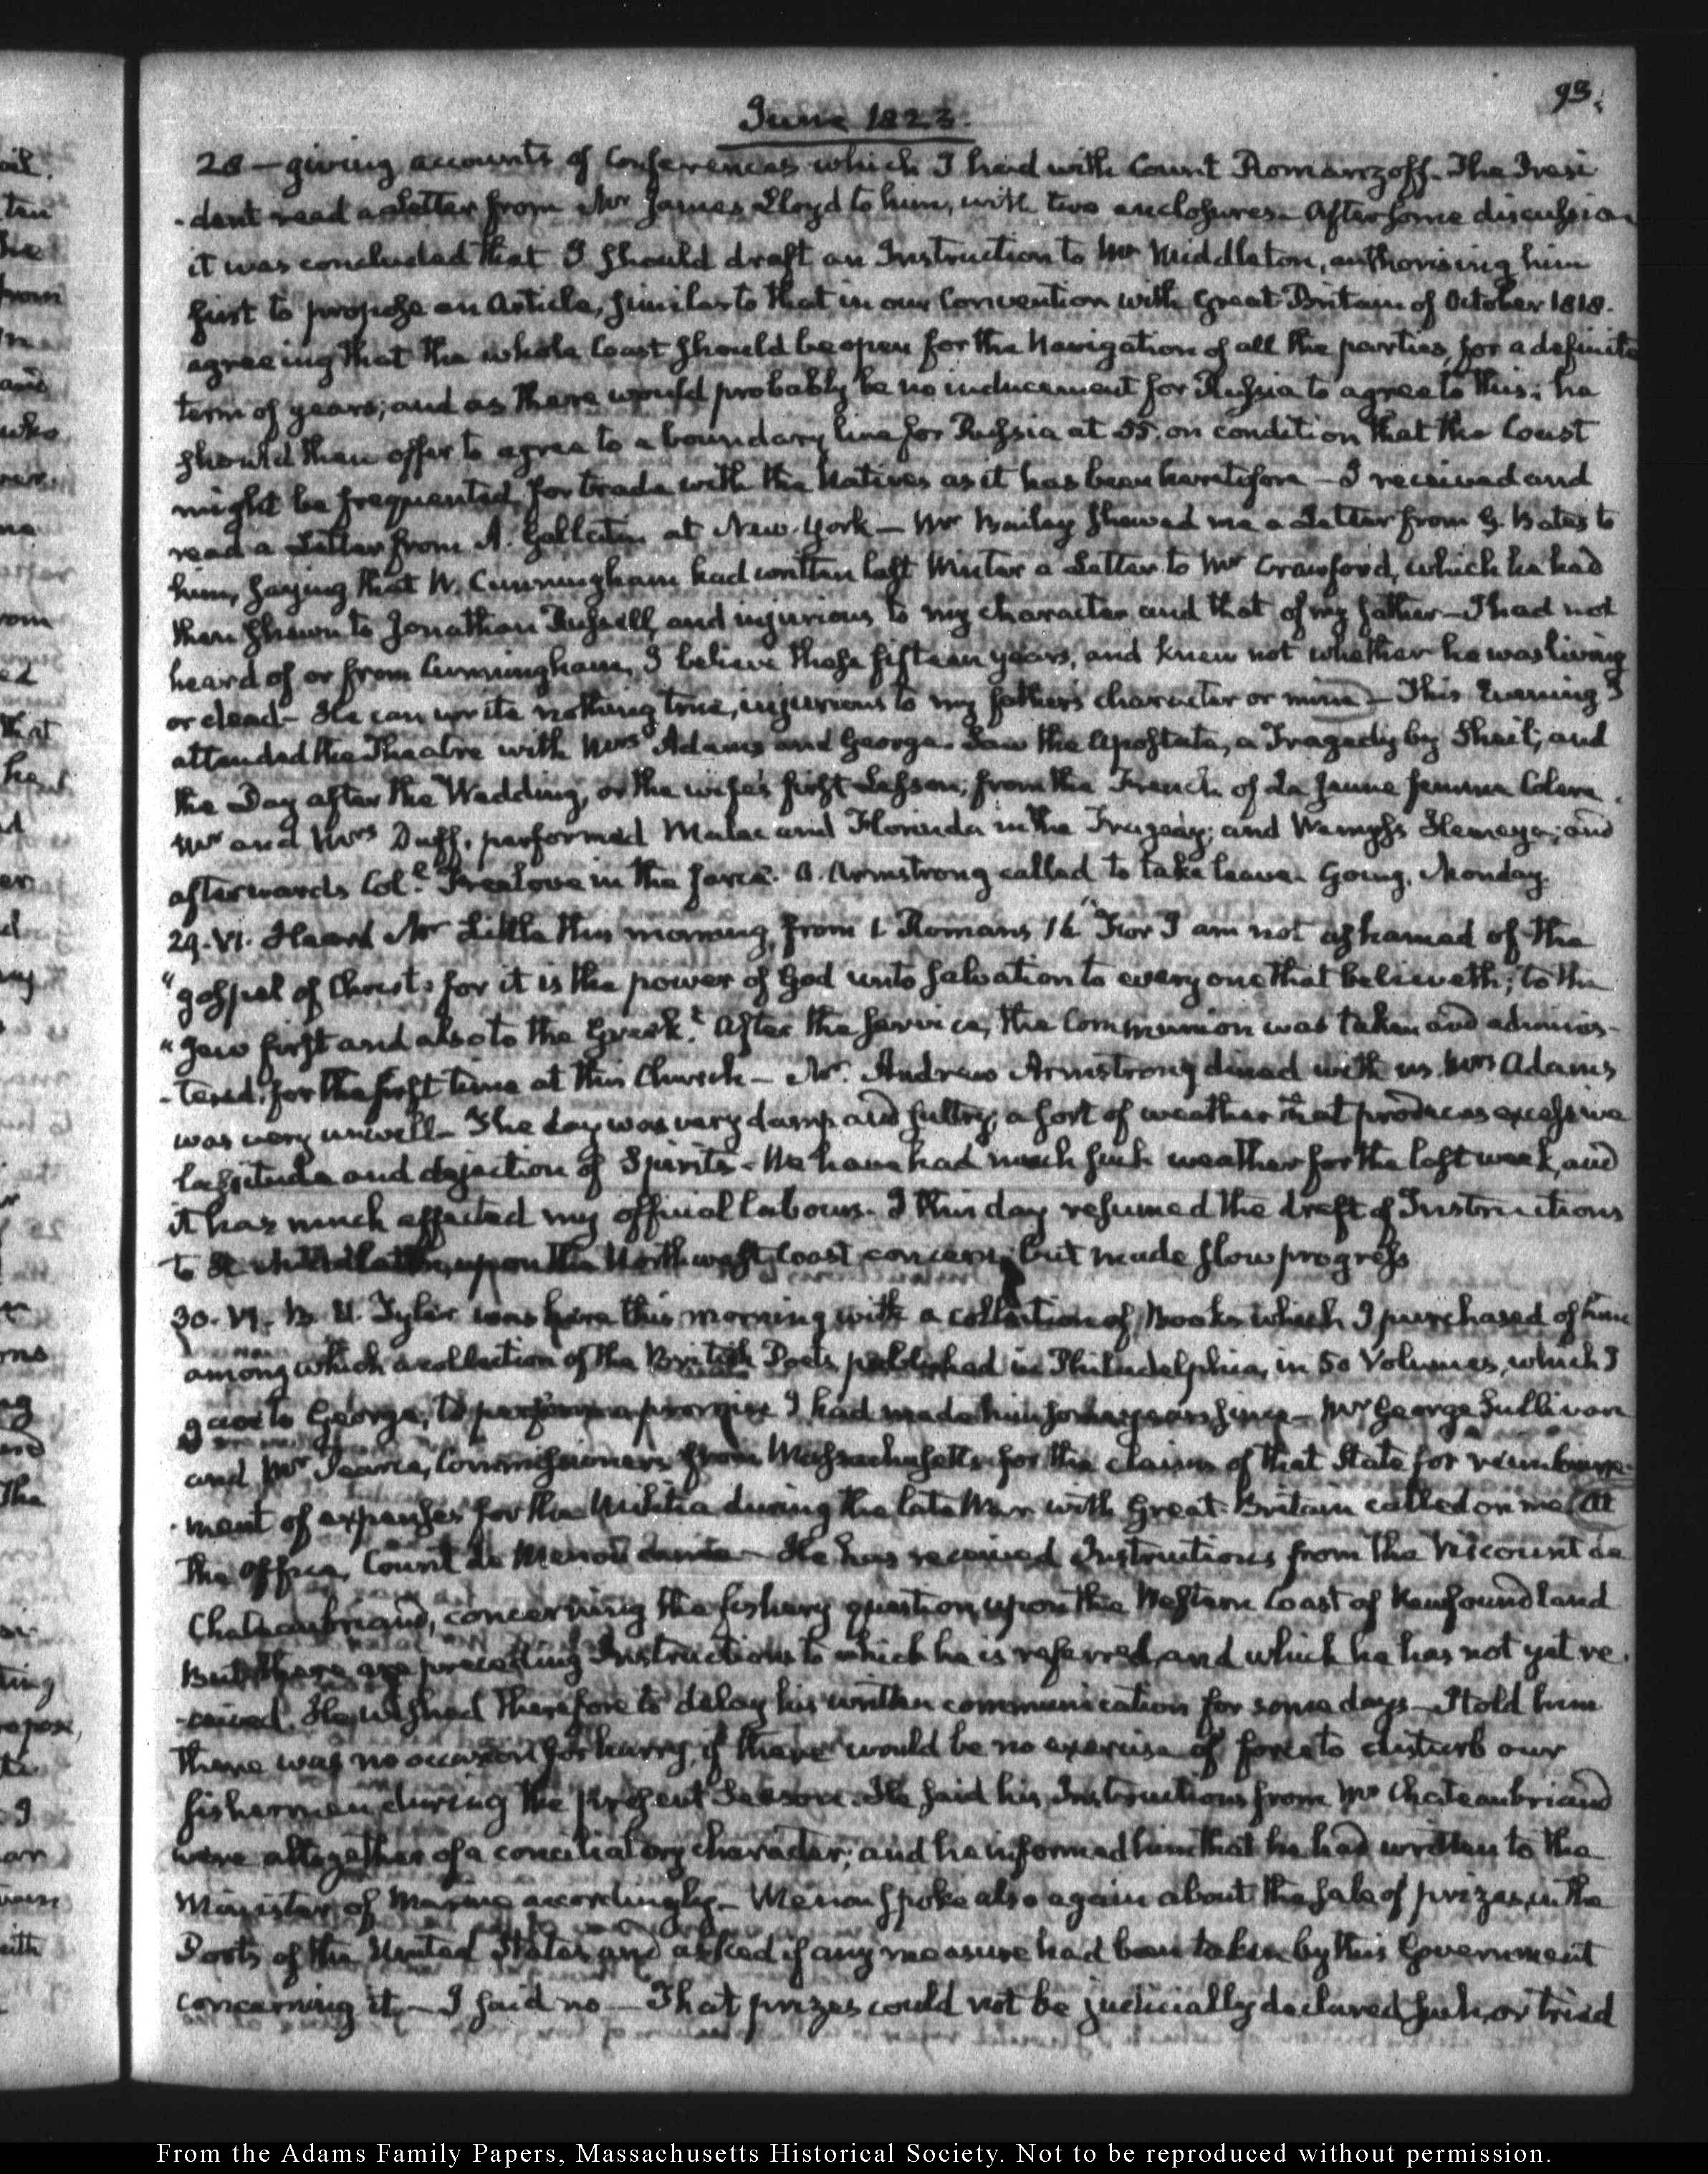 93.
June 1823.
28 — giving accounts of Conferences which I had with Count Romanzoff. The Presi
-dent read a Letter from Mr James Lloyd to him, with two enclosures. After some discussion
it was concluded that I should draft an Instruction to Mr Middleton, authorising him
first to propose an Article, similar to that in our Convention with Great-Britain of October 1818.
agreeing that the whole Coast should be open for the Navigation of all the parties, for a definite
term of years; and as there would probably be no inducement for Russia to agree to this; he
should then offer to agree to a boundary line for Russia at 55. on condition that the Coast
might be frequented for trade with the Natives as it has been heretofore — I received and
read a Letter from A. Gallatin at New-York — Mr Bailey shewed me a Letter from G. Bates to
him, saying that W. Cunningham had written last Winter a Letter to Mr Crawford, which he had
then shewn to Jonathan Russell, and injurious to my character and that of my father — I had not
heard of or from Cunningham, I believe these fifteen years, and knew not whether he was living
or dead — He can write nothing true, injurious to my father's character or mine — This Evening I
attended the Theatre with Mrs Adams and George. Saw the Apostate, a Tragedy by Sheil; and
the Day after the Wedding, or the wife's first Lesson; from the French of La Jeune femme Colere.
Mr and Mrs Duff, performed Malec and Florinda in the Tragedy; and Wemyss Hemeya; and
afterwards Coll. Freelove in the farce. A. Armstrong called to take leave. Going. Monday.
29. VI. Heard Mr Little this morning, from 1 Romans 16 "For I am not ashamed of the
"gospel of Christ: for it is the power of God unto salvation to every one that believeth; to the
"Jew first and also to the Greek." After the service, the Communion was taken and adminis-
-tered, for the first time at this Church — Mr. Andrew Armstrong dined with us. Mrs Adams
was very unwell — The day was very damp and sultry; a sort of weather that produces excessive
lassitude and dejection of Spirits — We have had much such weather for the last week, and
it has much affected my official labours. I this day resumed the draft of Instructions
to H. Middleton, upon the North-west Coast concern; but made slow progress
30. VI. B. U. Tyler was here this morning with a collection of Books which I purchased of him
among which a collection of the British Poets published in Philadelphia, in 50 Volumes, which I
gave to George, to perform a promise I had made him some years since — Mr George Sullivan
and Mr Pearce, Commissioners from Massachusetts for the claim of that State for reimburse-
-ment of expenses for the Militia during the late War with Great-Britain called on me. At
the Office, Count de Menou came — He has received Instructions from the Viscount de
Chateaubriand, concerning the fishery question, upon the Western Coast of Newfoundland
But there are preceding Instructions to which he is referred, and which he has not yet re
-ceived. He wished therefore to delay his written communication for some days — I told him
there was no occasion for hurry, if there would be no exercise of force to disturb our
fishermen during the present Season. He said his Instructions from Mr Chateaubriand
were altogether of a conciliatory character; and he informed him that he had written to the
Minister of Marine accordingly — Menou spoke also again about the sale of prizes, in the
Ports of the United States and asked if any measure had been taken by this Government
concerning it — I said no — That prizes could not be judicially declared such, or tried
From the Adams Family Papers, Massachusetts Historical Society. Not to be reproduced without permission.